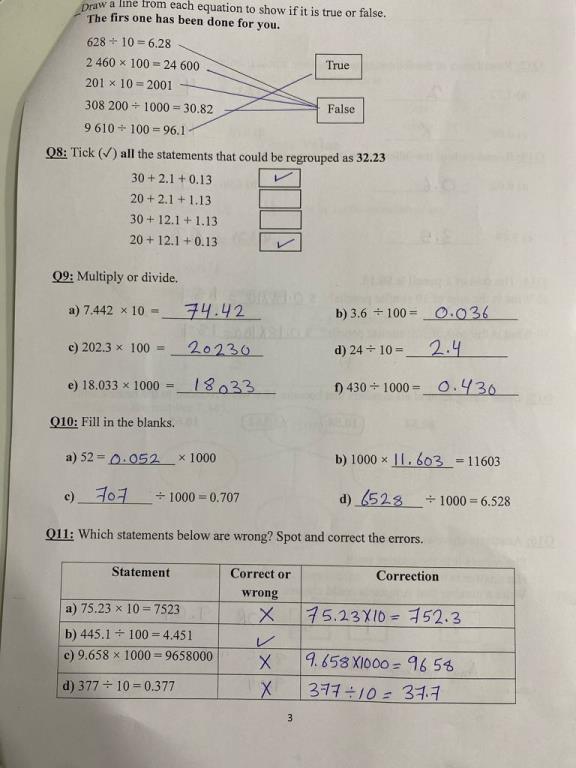 Draw a line from each equation to show if it is true or false.
The firs one has been done for you.
628 ÷ 10 = 6.28
2 460 × 100 = 24 600
True
201 × 10 = 2001
308 200 ÷ 1000 = 30.82
False
9 610 ÷ 100 = 96.1
Q8: Tick (✓) all the statements that could be regrouped as 32.23
30 + 2.1 + 0.13 ✓
20 + 2.1 + 1.13
30 + 12.1 + 1.13
20 + 12.1 + 0.13 ✓
Q9: Multiply or divide.
a) 7.442 × 10 = 74.42 b) 3.6 ÷ 100 = 0.036
c) 202.3 × 100 = 20230 d) 24 ÷ 10 = 2.4
e) 18.033 × 1000 = 18033 f) 430 ÷ 1000 = 0.430
Q10: Fill in the blanks.
a) 52 = 0.052 × 1000 b) 1000 × 11.603 = 11603
c) 707 ÷ 1000 = 0.707 d) 6528 ÷ 1000 = 6.528
Q11: Which statements below are wrong? Spot and correct the errors.
Statement Correct or wrong Correction
a) 75.23 × 10 = 7523 X 75.23X10 = 752.3
b) 445.1 ÷ 100 = 4.451 ✓
c) 9.658 × 1000 = 9658000 X 9.658X1000 = 9658
d) 377 ÷ 10 = 0.377 X 377÷10 = 37.7
3